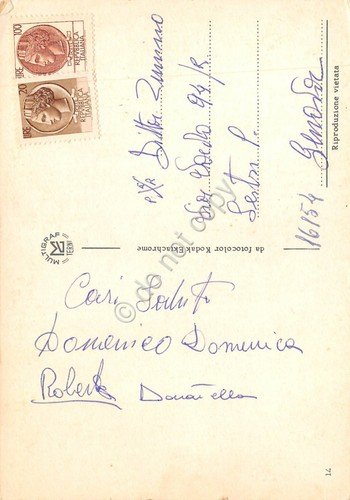 LIRE 100
REPUBBLICA
ITALIANA
LIRE 20
REPUBBLICA
ITALIANA
Ditta
Sestri P.
16154 Genova
Riproduzione vietata
MULTIGRAF
TERNI
da fotocolor Kodak Ektachrome
© do not copy
Cari Saluti
Domenico Domenica
Roberto Donatella
14